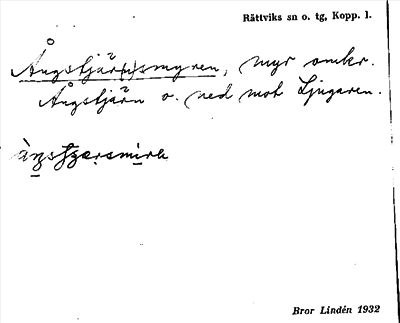 Rättviks sn o. tg, Kopp. l.
Ångstjär(n)smyren, myr omkr.
Ångstjärn o. ned mot Ljugaren.
Bror Lindén 1932